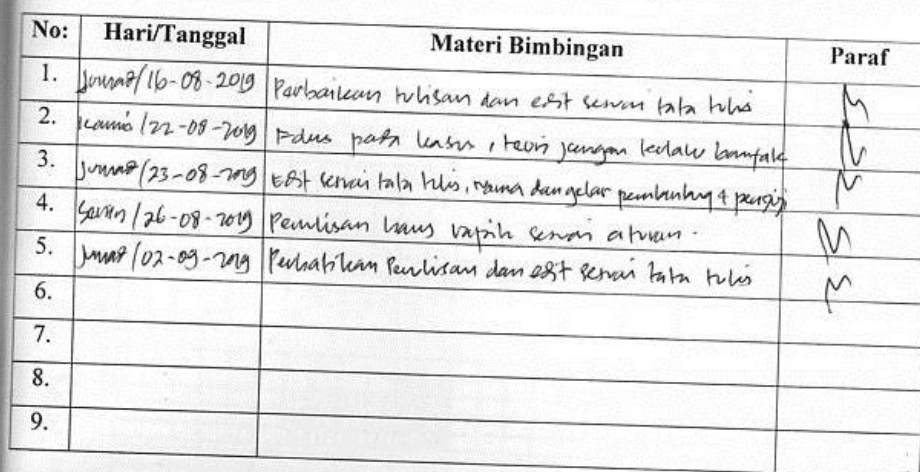 No: Hari/Tanggal Materi Bimbingan Paraf
1. Jumat/16-08-2019 Perbaikan tulisan dan edit sesuai tata tulis
2. Kamis/22-08-2019 Fokus pada kasus, teori jangan terlalu banyak
3. Jumat/23-08-2019 Edit sesuai tata tulis, nama dan gelar pembimbing + penguji
4. Senin/26-08-2019 Penulisan harus sesuai aturan.
5. Jumat/02-09-2019 Perhatikan Penulisan dan edit sesuai tata tulis
6.
7.
8.
9.